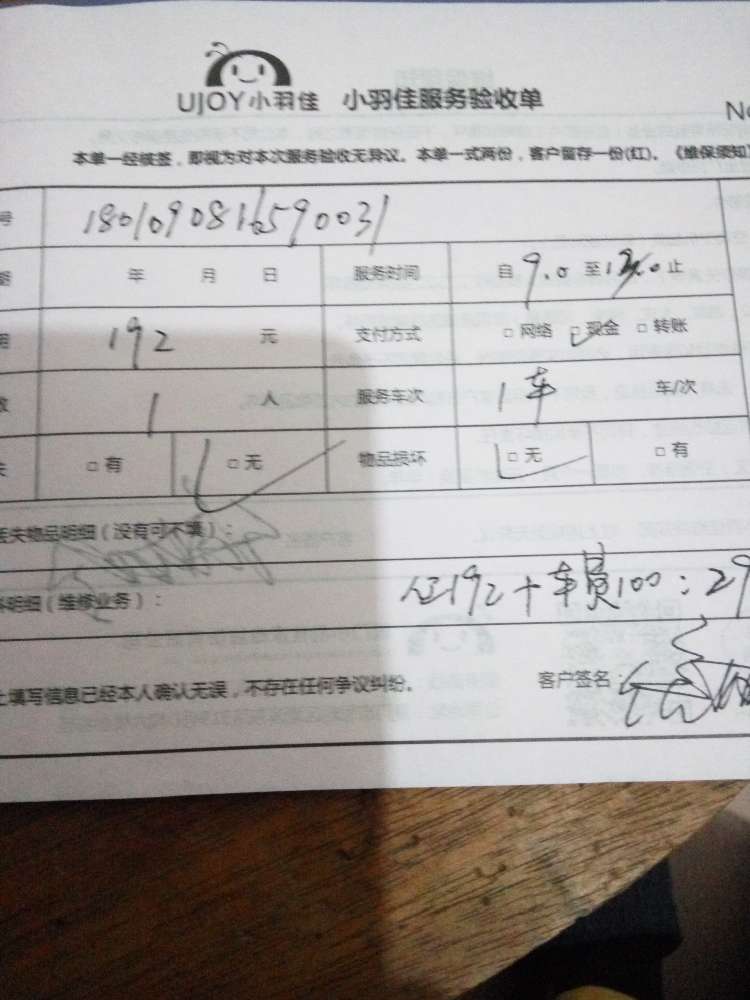 UJOY小羽佳 小羽佳服务验收单
No
本单一经核签，即视为对本次服务验收无异议。本单一式两份，客户留存一份(红)。《维保须知》
号 1801090816590031
期 年 月 日 服务时间 自 9.0 至 止
用 192 元 支付方式 □ 网络 □ 现金 □ 转账
数 1 人 服务车次 1车 车/次
失 □ 有 □ 无 物品损坏 □ 无 □ 有
丢失物品明细（没有可不填）：
明细（维修业务）： 192+车费100：29
上填写信息已经本人确认无误，不存在任何争议纠纷。 客户签名：